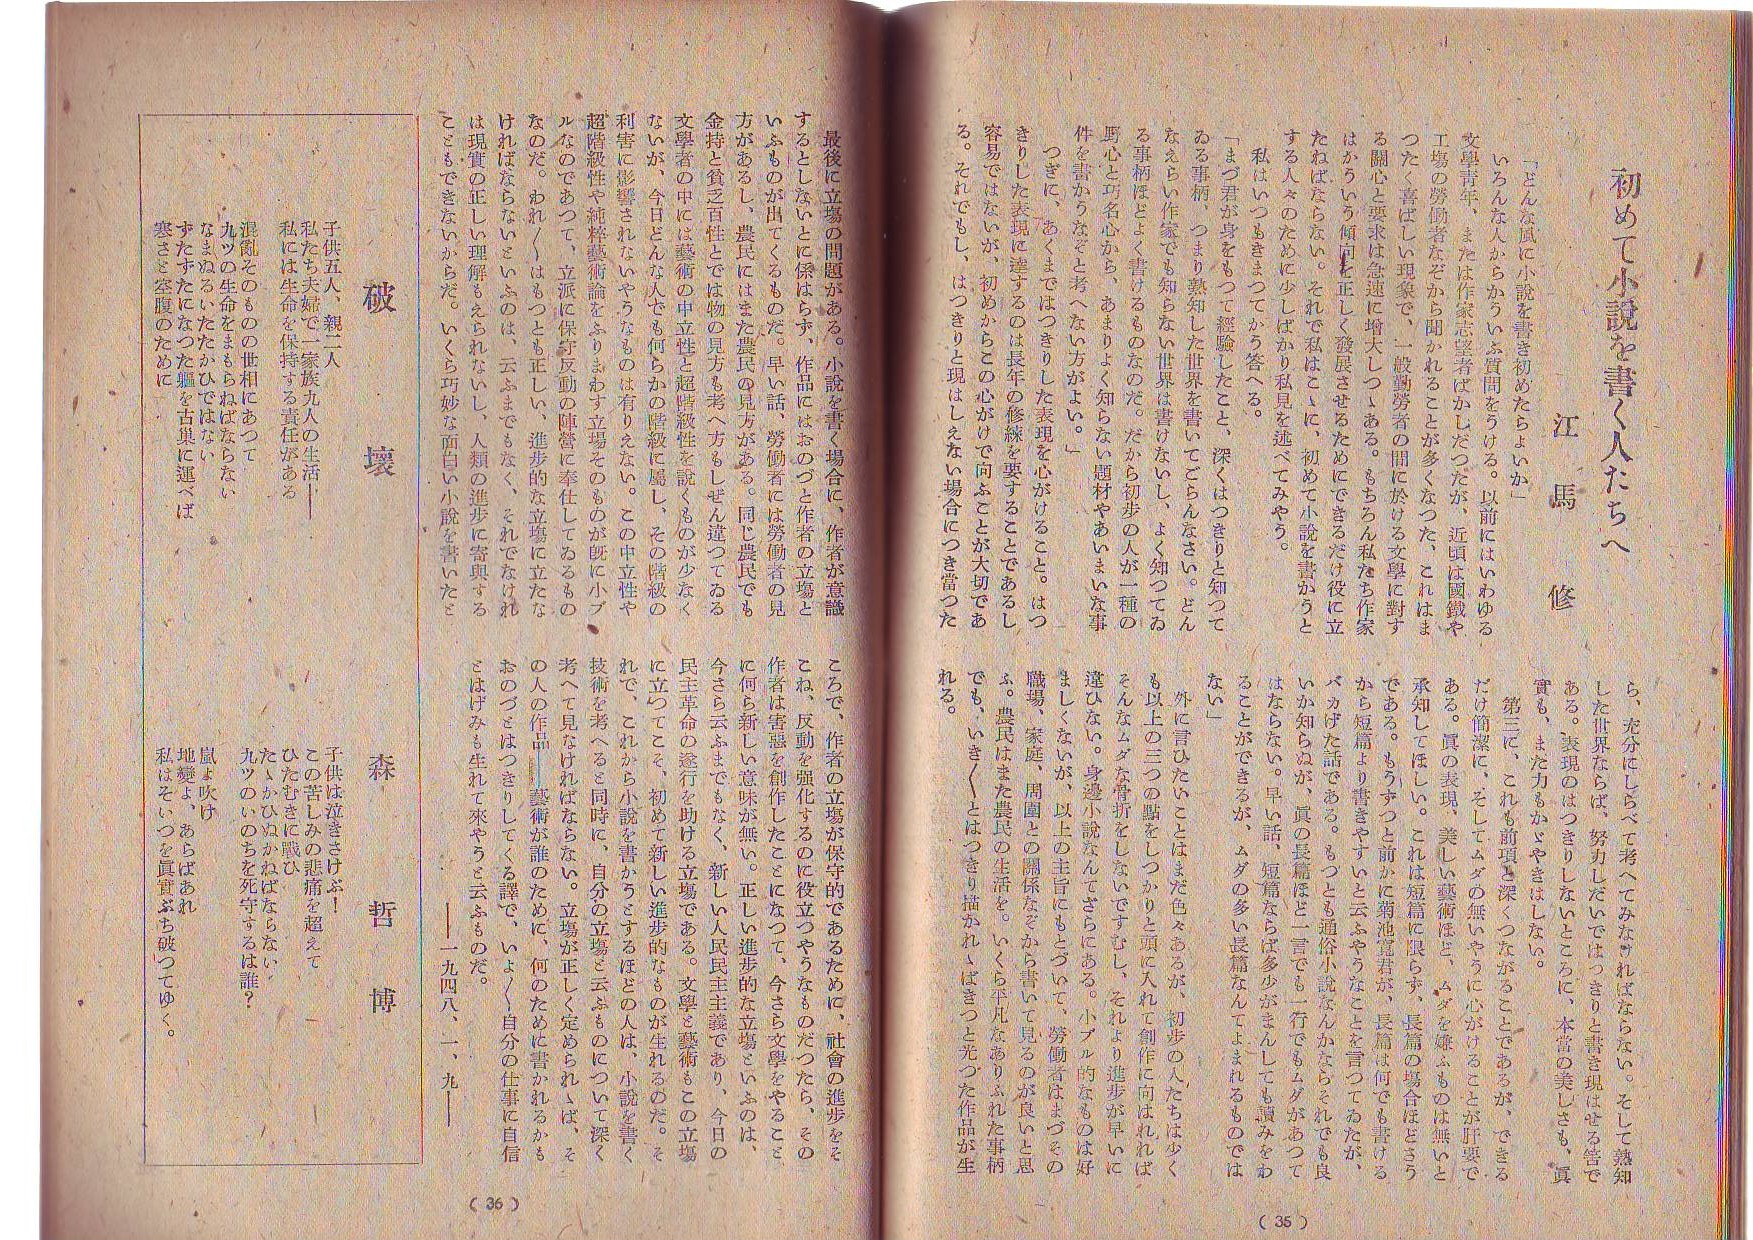 初めて小說を書く人たちへ
江馬修
「どんな風に小說を書き初めたらよいか」
いろんな人からかういふ質問をうける。以前にはいわゆる
文學青年、または作家志望者ばかしだつたが、近頃は國鐵や
工塲の勞働者なぞから聞かれることが多くなつた、これはま
つたく喜ばしい現象で、一般勤勞者の間に於ける文學に對す
る關心と要求は急速に增大しつゝある。もちろん私たち作家
はかういう傾向を正しく發展させるためにできるだけ役に立
たねばならない。それで私はこゝに、初めて小說を書かうと
する人々のために少しばかり私見を述べてみやう。
私はいつもきまつてかう答へる。
「まづ君が身をもつて經驗したこと、深くはつきりと知つて
ゐる事柄、つまり熟知した世界を書いてごらんなさい。どん
なえらい作家でも知らない世界は書けないし、よく知つてゐ
る事柄ほどよく書けるものなのだ。だから初步の人が一種の
野心と巧名心から、あまりよく知らない題材やあいまいな事
件を書かうなぞと考へない方がよい。」
つぎに、あくまではつきりした表現を心がけること。はつ
きりした表現に達するのは長年の修練を要することであるし
容易ではないが、初めからこの心がけで向ふことが大切であ
る。それでもし、はつきりと現はしえない場合につき當つた
ら、充分にしらべて考へてみなければならない。そして熟知
した世界ならば、努力しだいではつきりと書き現はせる筈で
ある。表現のはつきりしないところに、本當の美しさも、眞
實も、また力もかゞやきはしない。
第三に、これも前項と深くつながることであるが、できる
だけ簡潔に、そしてムダの無いやうに心がけることが肝要で
ある。眞の表現、美しい藝術ほど、ムダを嫌ふものは無いと
承知してほしい。これは短篇に限らず、長篇の場合ほどさう
である。もうずつと前かに菊池寬君が、長篇は何でも書ける
から短篇より書きやすいと云ふやうなことを言つてゐたが、
バカげた話である。もつとも通俗小說なんかならそれでも良
いか知らぬが、眞の長篇ほど一言でも一行でもムダがあつて
はならない。早い話、短篇ならば多少がまんしても讀みをわ
ることができるが、ムダの多い長篇なんてよまれるものでは
ない」
外に言ひたいことはまだ色々あるが、初步の人たちは少く
も以上の三つの點をしつかりと頭に入れて創作に向はれれば
そんなムダな骨折をしないですむし、それより進步が早いに
違ひない。身邊小說なんてざらにある。小ブル的なものは好
ましくないが、以上の主旨にもとづいて、勞働者はまづその
職場、家庭、周圍との關係なぞから書いて見るのが良いと思
ふ。農民はまた農民の生活を。いくら平凡なありふれた事柄
でも、いき〱とはつきり描かれゝばきつと光つた作品が生
れる。
( 35 )
最後に立塲の問題がある。小說を書く場合に、作者が意識
するとしないとに係はらず、作品にはおのづと作者の立塲と
いふものが出てくるものだ。早い話、勞働者には勞働者の見
方があるし、農民にはまた農民の見方がある。同じ農民でも
金持と貧乏百性とでは物の見方も考へ方もしぜん違つてゐる
文學者の中には藝術の中立性と超階級性を說くものが少なく
ないが、今日どんな人でも何らかの階級に屬し、その階級の
利害に影響されないやうなものは有りえない。この中立性や
超階級性や純粹藝術論をふりまわす立場そのものが旣に小ブ
ルなのであつて、立派に保守反動の陣營に奉仕してゐるもの
なのだ。われ〱はもつとも正しい、進步的な立塲に立たな
ければならないといふのは、云ふまでもなく、それでなけれ
は現實の正しい理解もえられないし、人類の進步に寄與する
こともできないからだ。いくら巧妙な面白い小說を書いたと
ころで、作者の立場が保守的であるために、社會の進步をそ
こね、反動を强化するのに役立つやうなものだつたら、その
作者は害惡を創作したことになつて、今さら文學をやること
に何ら新しい意味が無い。正しい進步的な立塲といふのは、
今さら云ふまでもなく、新しい人民民主主義であり、今日の
民主革命の遂行を助ける立場である。文學と藝術もこの立塲
に立つてこそ、初めて新しい進步的なものが生れるのだ。そ
れで、これから小說を書かうとするほどの人は、小說を書く
技術を考へると同時に、自分の立塲と云ふものについて深く
考へて見なければならない。立塲が正しく定められゝば、そ
の人の作品――藝術が誰のために、何のために書かれるかも
おのづとはつきりしてくる譯で、いよ〱自分の仕事に自信
とはげみも生れて來やうと云ふものだ。
――一九四八、一、九――
破壞
森哲博
子供五人、親二人
私たち夫婦で一家族九人の生活――
私には生命を保持する責任がある
混亂そのものの世相にあつて
九ツの生命をまもらねばならない
なまぬるいたたかひではない
ずたずたになつた軀を古巢に運べば
寒さと空腹のために
子供は泣きさけぶ!
この苦しみの悲痛を超えて
ひたむきに戰ひ
たゝかひぬかねばならない
九ツのいのちを死守するは誰?
嵐よ吹け
地變よ、あらばあれ
私はそいつを眞實ぶち破つてゆく。
( 36 )